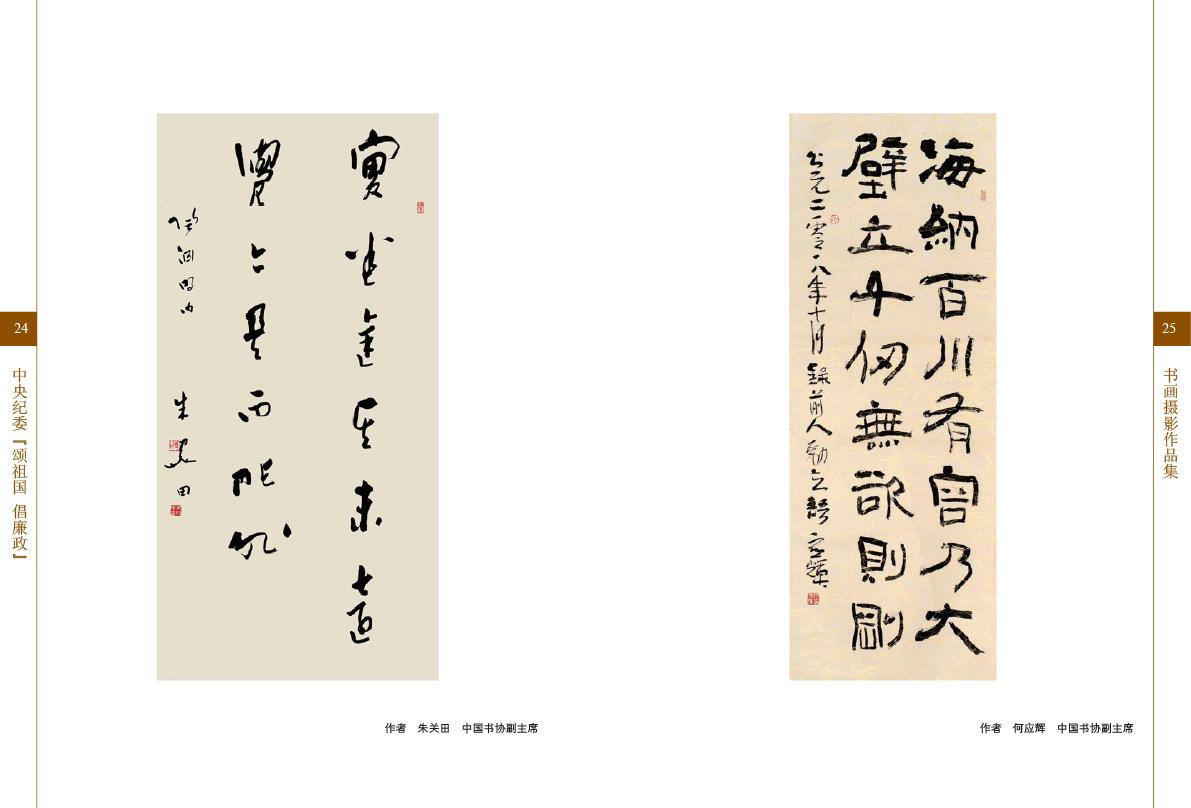 24
中央纪委『颂祖国 倡廉政』
實迷途其未遠
覺今是而昨非
陶淵明句
朱關田
作者 朱关田 中国书协副主席
海納百川有容乃大
壁立千仞無欲則剛
公元二零零八年十月錄前人語應輝
作者 何应辉 中国书协副主席
25
书画摄影作品集